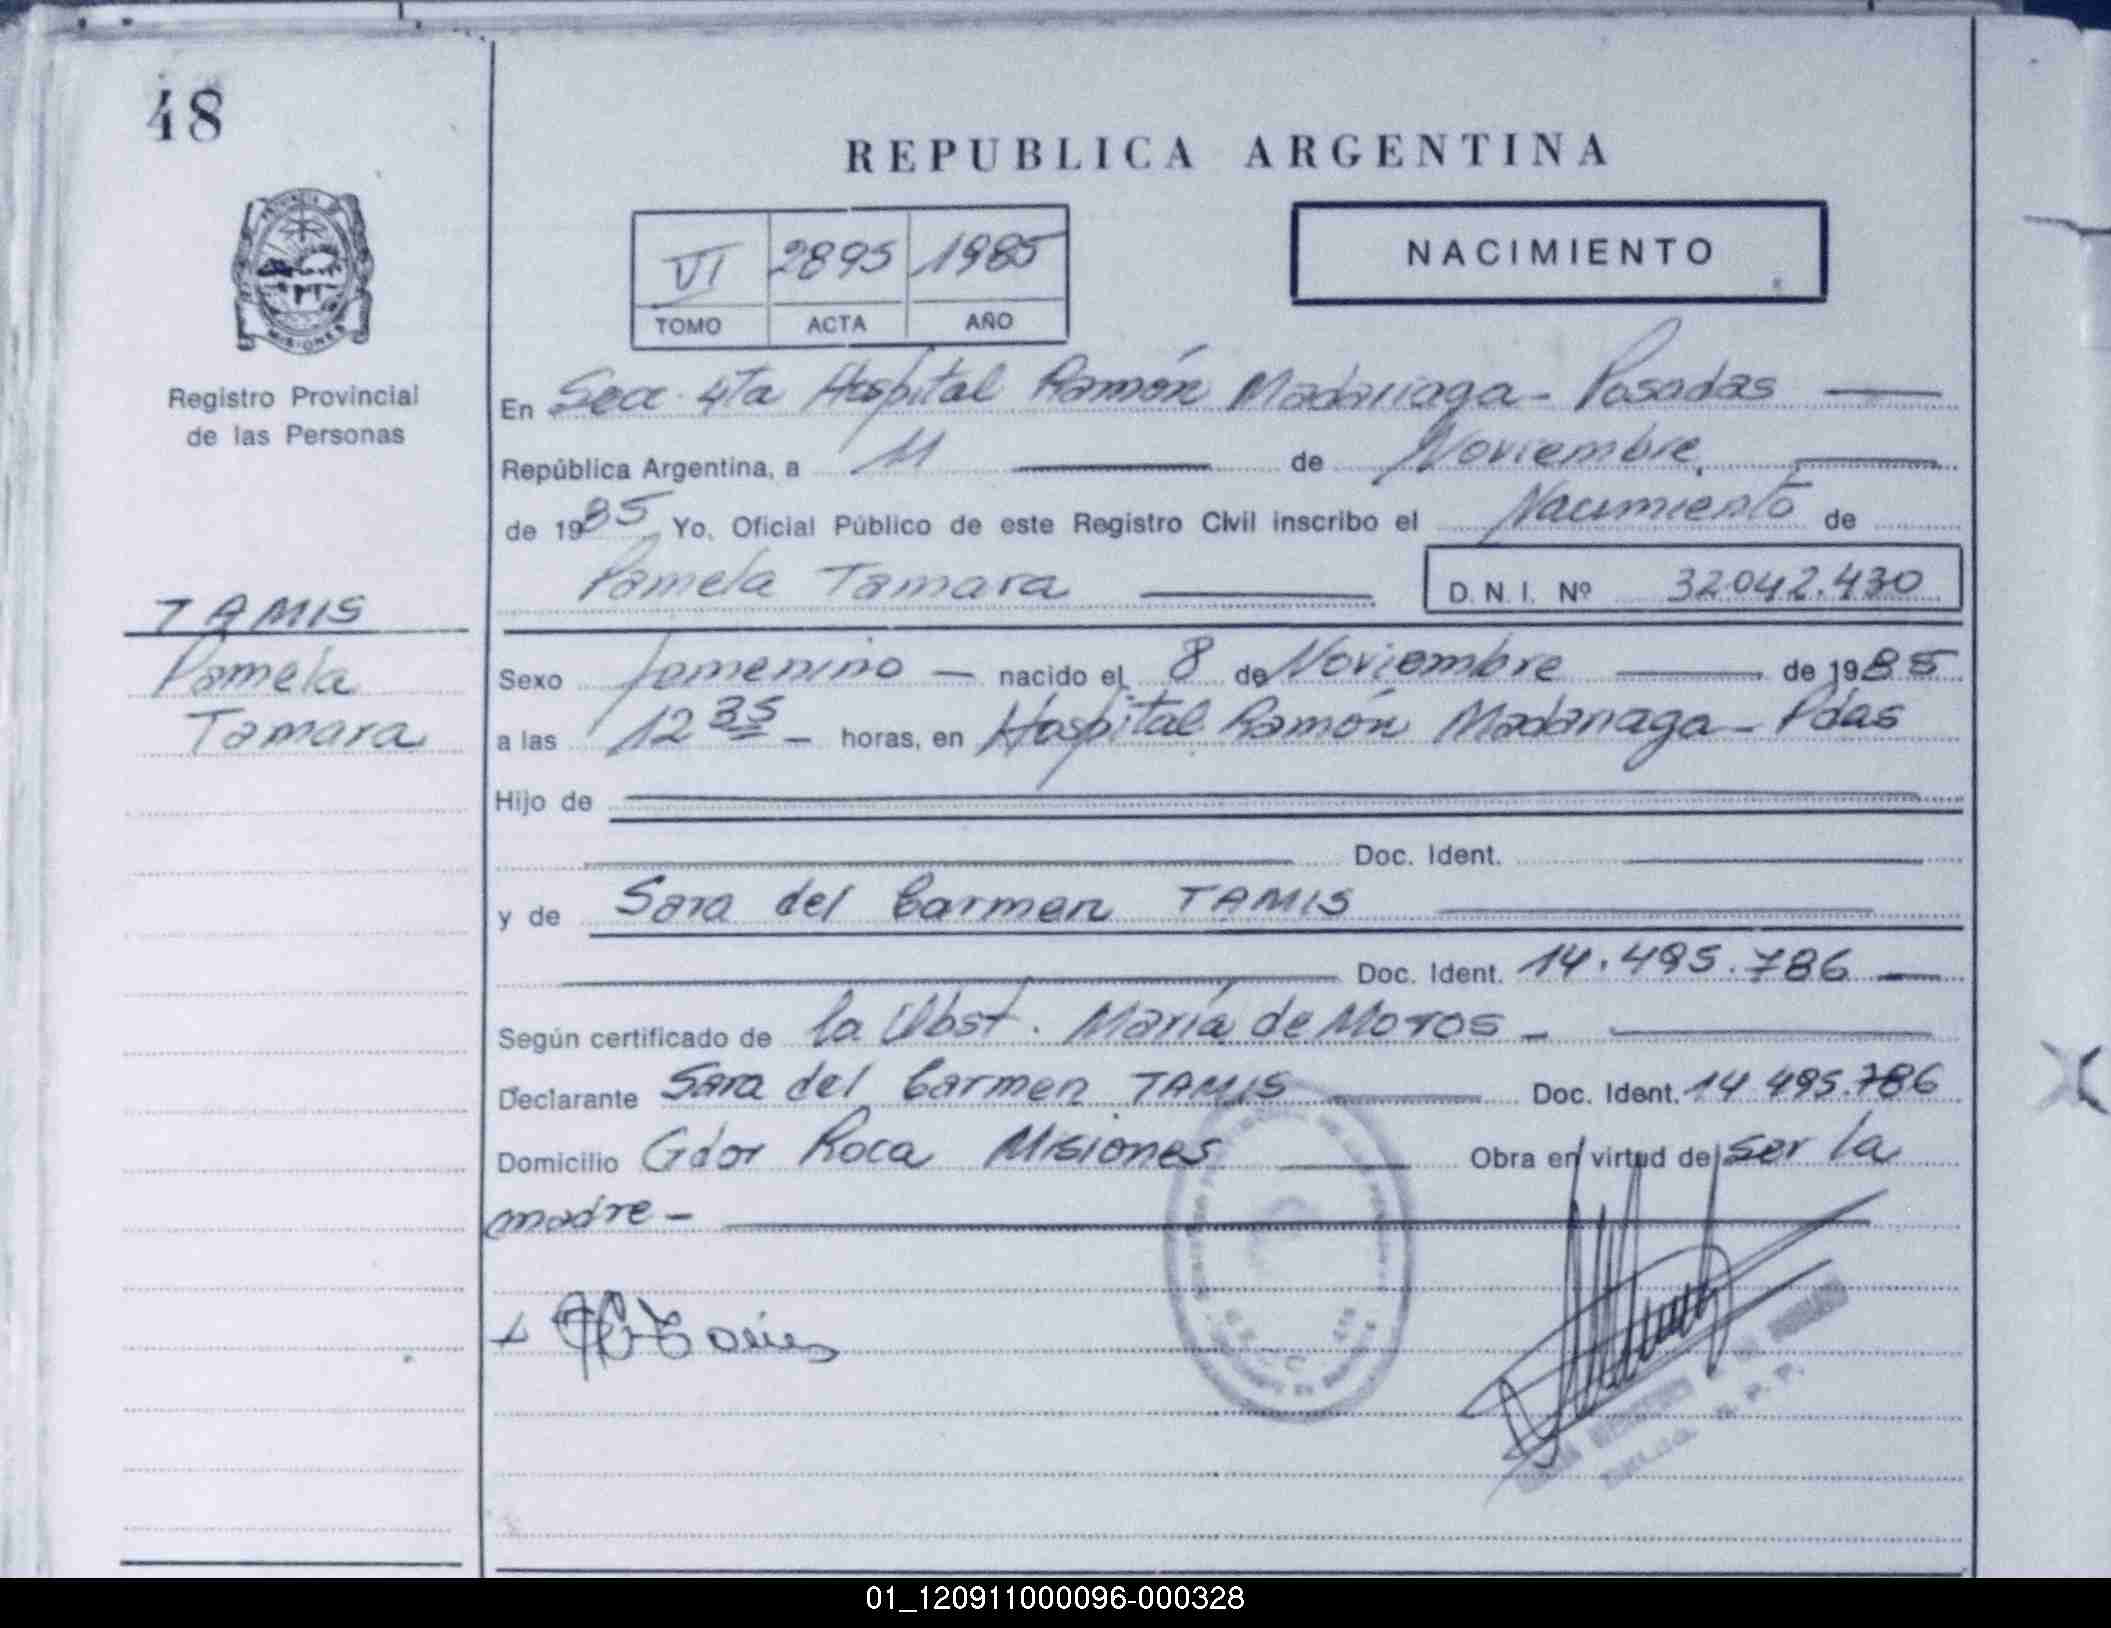 48
REPUBLICA ARGENTINA
PROVINCIA
MISIONES
VI 2895 1985
TOMO ACTA AÑO
NACIMIENTO
Registro Provincial
de las Personas
En Secc. 4ta Hospital Ramón Madariaga - Posadas
República Argentina, a 11 de Noviembre
de 1985 Yo, Oficial Público de este Registro Civil inscribo el Nacimiento de
Pamela Tamara D. N. I. Nº 32.042.430
TAMIS
Pamela
Tamara
Sexo femenino - nacido el 8 de Noviembre de 1985
a las 12 35 - horas, en Hospital Ramón Madariaga - Pdas
Hijo de
Doc. Ident.
y de Sara del Carmen TAMIS
Doc. Ident. 14.495.786
Según certificado de la Obst. María de Moros -
Declarante Sara del Carmen TAMIS Doc. Ident. 14 495.786
Domicilio Gdor Roca Misiones Obra en virtud de ser la
madre -
R. P. P.
01_120911000096-000328